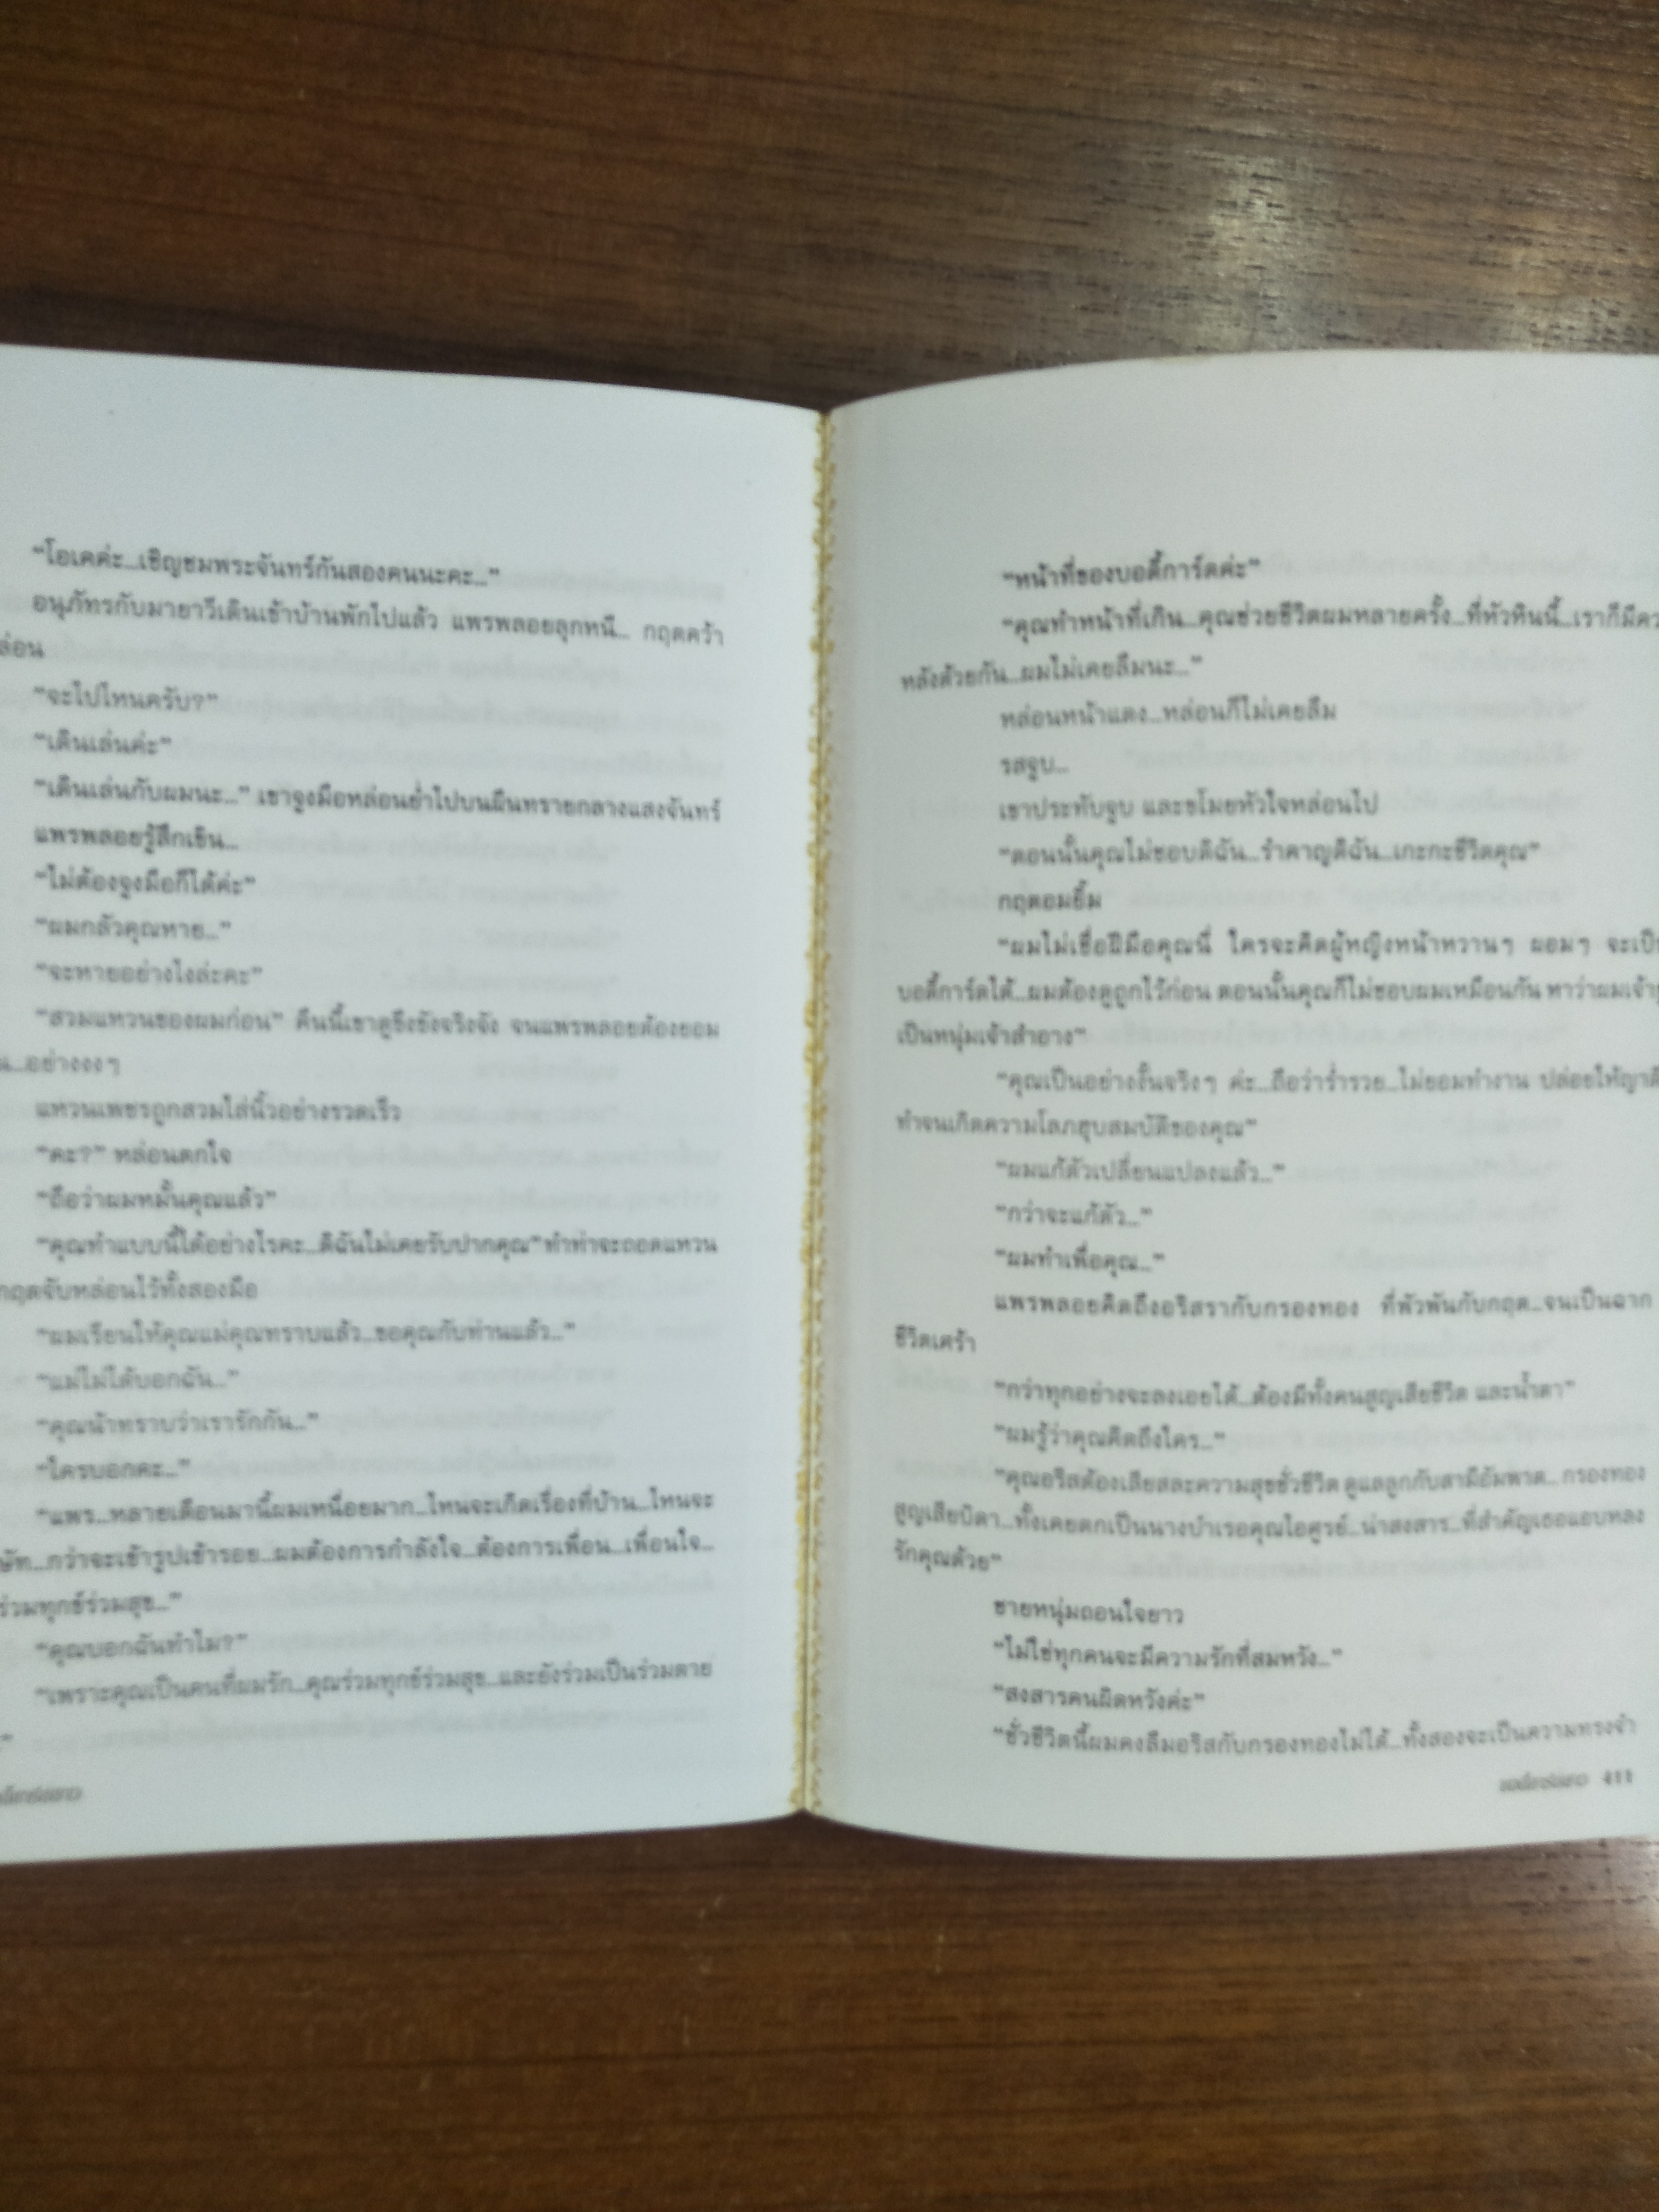 “โอเคค่ะ...เชิญชมพระจันทร์กันสองคนนะคะ...”
อนุภัทรกับมายาวีเดินเข้าบ้านพักไปแล้ว แพรพลอยลุกหนี... กฤตคว้า
ล่อน
“จะไปไหนครับ?”
“เดินเล่นค่ะ”
“เดินเล่นกับผมนะ...” เขาจูงมือหล่อนย่ำไปบนผืนทรายกลางแสงจันทร์
แพรพลอยรู้สึกเขิน...
“ไม่ต้องจูงมือก็ได้ค่ะ”
“ผมกลัวคุณหาย...”
“จะหายอย่างไงล่ะคะ”
“สวมแหวนของผมก่อน” คืนนี้เขาดูขึงขังจริงจัง จนแพรพลอยต้องยอม
น...อย่างงงๆ
แหวนเพชรถูกสวมใส่นิ้วอย่างรวดเร็ว
“คะ?” หล่อนตกใจ
“ถือว่าผมหมั้นคุณแล้ว”
“คุณทำแบบนี้ได้อย่างไรคะ...ดิฉันไม่เคยรับปากคุณ” ทำท่าจะถอดแหวน
กฤตจับหล่อนไว้ทั้งสองมือ
“ผมเรียนให้คุณแม่คุณทราบแล้ว...ขอคุณกับท่านแล้ว...”
“แม่ไม่ได้บอกฉัน...”
“คุณน้าทราบว่าเรารักกัน...”
“ใครบอกคะ...”
“แพร...หลายเดือนมานี้ผมเหนื่อยมาก...ไหนจะเกิดเรื่องที่บ้าน...ไหนจะ
ษัท...กว่าจะเข้ารูปเข้ารอย...ผมต้องการกำลังใจ...ต้องการเพื่อน...เพื่อนใจ...
ร่วมทุกข์ร่วมสุข...”
“คุณบอกฉันทำไม?”
“เพราะคุณเป็นคนที่ผมรัก...คุณร่วมทุกข์ร่วมสุข...และยังร่วมเป็นร่วมตาย
”
“หน้าที่ของบอดี้การ์ดค่ะ”
“คุณทำหน้าที่เกิน...คุณช่วยชีวิตผมหลายครั้ง...ที่หัวหินนี้...เราก็มีคว
หลังด้วยกัน...ผมไม่เคยลืมนะ...”
หล่อนหน้าแดง...หล่อนก็ไม่เคยลืม
รสจูบ...
เขาประทับจูบ และขโมยหัวใจหล่อนไป
“ตอนนั้นคุณไม่ชอบดิฉัน...รำคาญดิฉัน...เกะกะชีวิตคุณ”
กฤตอมยิ้ม
“ผมไม่เชื่อฝีมือคุณนี่ ใครจะคิดผู้หญิงหน้าหวานๆ ผอมๆ จะเป็น
บอดี้การ์ดได้...ผมต้องดูถูกไว้ก่อน ตอนนั้นคุณก็ไม่ชอบผมเหมือนกัน หาว่าผมเจ้าชู้
เป็นหนุ่มเจ้าสำอาง”
“คุณเป็นอย่างงั้นจริงๆ ค่ะ...ถือว่าร่ำรวย...ไม่ยอมทำงาน ปล่อยให้ญาติ
ทำจนเกิดความโลภฮุบสมบัติของคุณ”
“ผมแก้ตัวเปลี่ยนแปลงแล้ว...”
“กว่าจะแก้ตัว...”
“ผมทำเพื่อคุณ...”
แพรพลอยคิดถึงอริสรากับกรองทอง ที่พัวพันกับกฤต...จนเป็นฉาก
ชีวิตเศร้า
“กว่าทุกอย่างจะลงเอยได้...ต้องมีทั้งคนสูญเสียชีวิต และน้ำตา”
“ผมรู้ว่าคุณคิดถึงใคร...”
“คุณอริสต้องเสียสละความสุขชั่วชีวิต ดูแลลูกกับสามีอัมพาต... กรองทอง
สูญเสียบิดา...ทั้งเคยตกเป็นนางบำเรอคุณไอศูรย์...น่าสงสาร...ที่สำคัญเธอแอบหลง
รักคุณด้วย”
ชายหนุ่มถอนใจยาว
“ไม่ใช่ทุกคนจะมีความรักที่สมหวัง...”
“สงสารคนผิดหวังค่ะ”
“ชั่วชีวิตนี้ผมคงลืมอริสกับกรองทองไม่ได้...ทั้งสองจะเป็นความทรงจำ